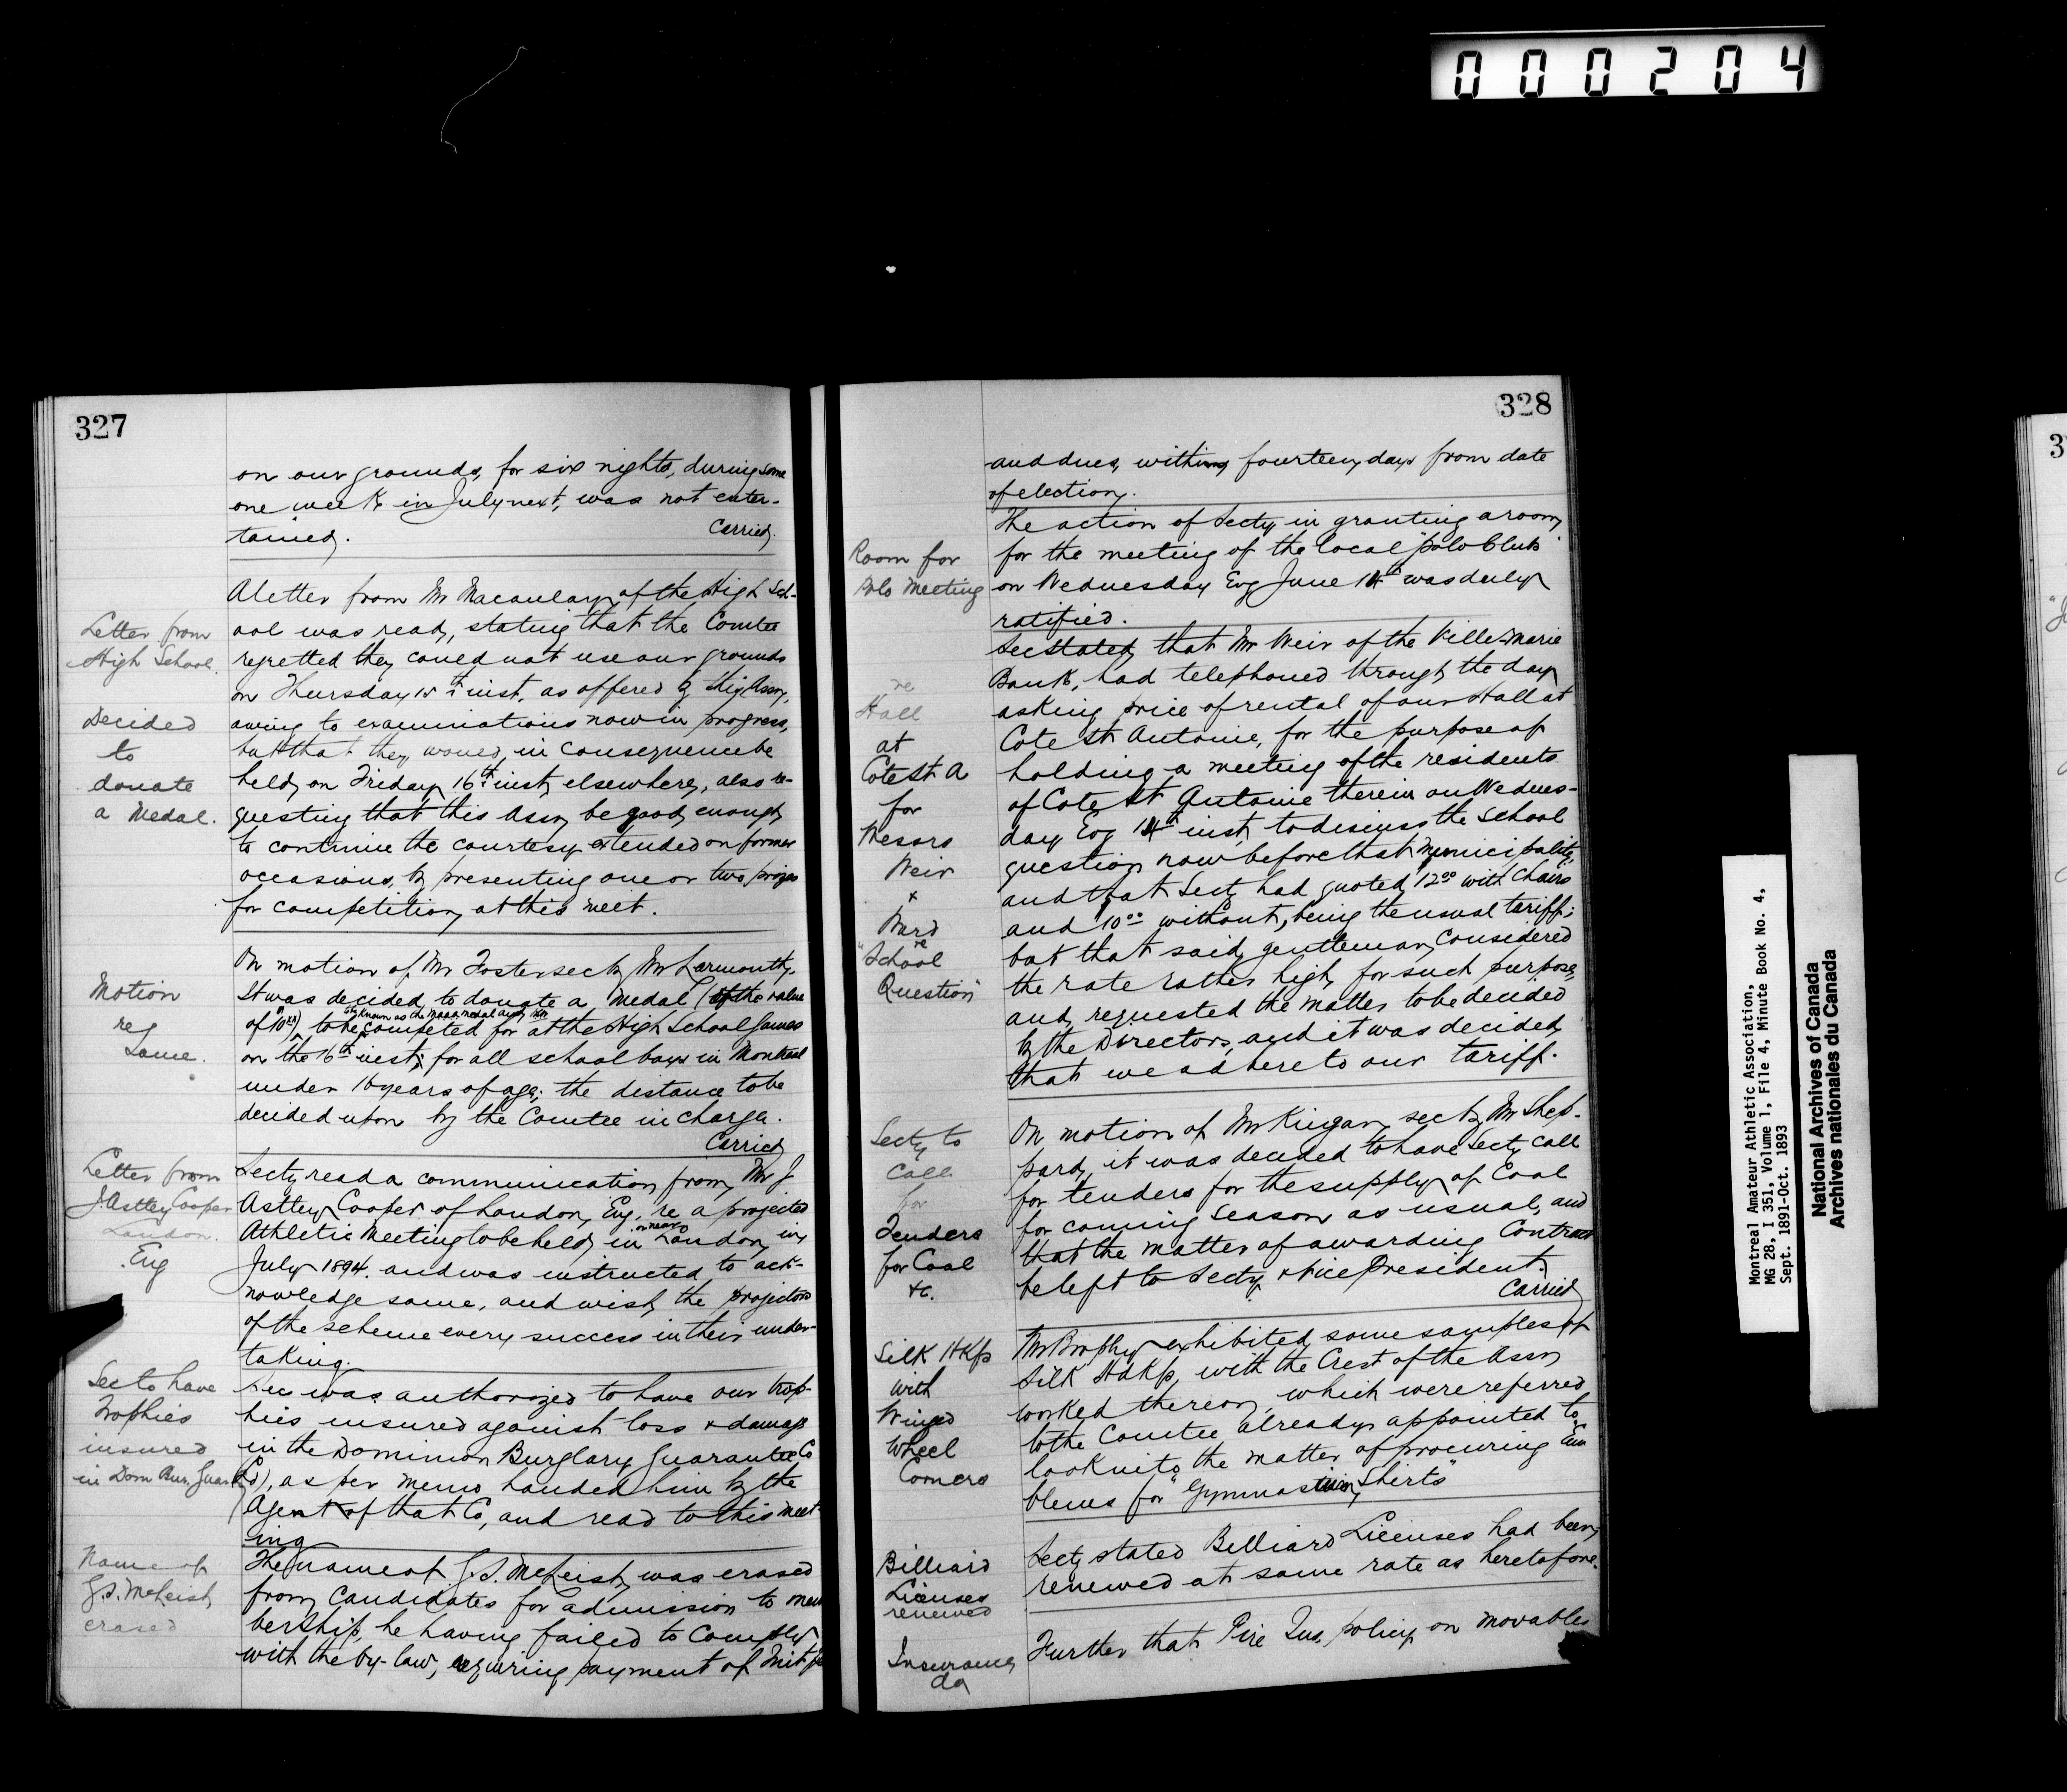 000204
327
on our grounds, for six nights, during some
one week in July next, was not enter-
tained.
Carried.
Letter from
High School.
A letter from Mr Macaulay of the High Sch-
ool was read, stating that the Comtee
regretted they could not use our grounds
on Thursday 15th inst. as offered by this Assn,
owing to examinations now in progress,
but that they would, in consequence be
held on Friday 16th inst, elsewhere, also re-
questing that this Assn be good enough
to continue the courtesy extended on former
occasions, by presenting one or two prizes
for competition at this meet.
Decided
to
donate
a Medal.
Motion
re
Same.
On motion of Mr Foster sec by Mr Larmonth,
It was decided to donate a Medal (of the value
of 10.00), to be competed for at the High School Games
on the 16th inst; for all school boys in Montreal
under 16 years of age; the distance to be
decided upon by the Comtee in charge.
Carried
Letter from
J. Astley Cooper
London.
Eng
Secty read a communication from Mr J
Astley Cooper of London, Eng. re a projected
Athletic Meeting to be held in or near London, in
July 1894. and was instructed to ack-
nowledge same, and wish the projectors
of the scheme every success in their under-
taking.
Sec to have
Trophies
insured
in Dom Bur. Guar
Sec was authorized to have our trop-
hies insured against loss & damage
in the Dominion Burglary Guarantee Co
(Ld), as per memo handed him by the
Agent of that Co, and read to this meet-
ing
Name of
J.S. McLeish
erased
The name of J.S. McLeish was erased
from Candidates for admission to mem
bership, he having failed to comply
with the by-law, requiring payment of Init fee
328
and dues, within fourteen days from date
of election.
Room for
Polo Meeting
The action of Secty in granting a room
for the meeting of the local "polo Club"
on Wednesday Evg June 14th was duly
ratified.
re
Hall
at
Cote St A
for
Messrs
Weir
&
Ward
re
"School
Question"
Sec stated that Mr Weir of the Ville-Marie
Bank, had telephoned through the day
asking price of rental of our Hall at
Cote St Antoine, for the purpose of
holding a meeting of the residents
of Cote St Antoine therein on Wednes-
day Evg 14th inst, to discuss the School
question now before that Municipality,
and that Secty had quoted 12.00 with Chairs
and 10.00 without, being the usual tariff;
but that said gentleman considered
the rate rather high for such purpose,
and requested the matter to be decided
by the Directors, and it was decided
that we adhere to our tariff.
Secty to
Call
for
Tenders
for Coal
&c.
On motion of Mr Kingan, sec by Mr Shep-
pard, it was decided to have Secty call
for tenders for the supply of Coal
for coming Season as usual, and
that the matter of awarding Contract
be left to Secty & Vice President.
Carried
Silk Hkfs
with
Winged
Wheel
Corners
Mr Brophy exhibited some samples of
Silk Hdkfs, with the Crest of the Assn
worked thereon, which were referred
to the Comtee already appointed to
look into the matter of procuring Em
blems for "Gymnasium Shirts"
Billiard
Licenses
renewed
Secty stated Billiard Licenses had been
renewed at same rate as heretofore.
Insurance
do
Further that Fire Ins. policy on movables
Montreal Amateur Athletic Association,
MG 28, I 351, Volume 1, File 4, Minute Book No. 4,
Sept. 1891-Oct. 1893
National Archives of Canada
Archives nationales du Canada